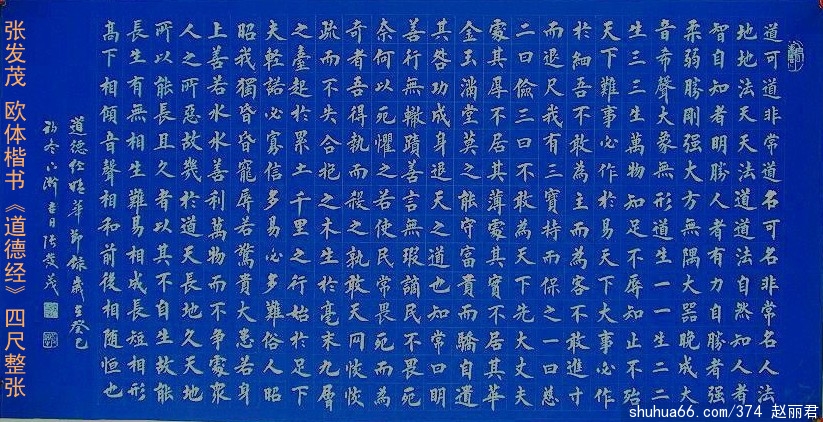 道可道非常道名可名非常名人法
地地法天天法道道法自然知人者
智自知者明勝人者有力自勝者强
柔弱勝剛强大方無隅大器晚成大
音希聲大象無形道生一一生二二
生三三生萬物知足不辱知止不殆
天下難事必作於易天下大事必作
於細吾不敢為主而為客不敢進寸
而退尺我有三寳持而保之一曰慈
二曰儉三曰不敢為天下先大丈夫
處其厚不居其薄處其實不居其華
金玉滿堂莫之能守富貴而驕自遺
其咎功成身退天之道也知常曰明
善行無轍蹟善言無瑕謫民不畏死
奈何以死懼之若使民常畏死而為
奇者吾得執而殺之孰敢天网恢恢
疏而不失合抱之木生於毫末九層
之臺起於累土千里之行始於足下
夫輕諾必寡信多易必多難俗人昭
昭我獨昏昏寵辱若驚貴大患若身
上善若水水善利萬物而不争處衆
人之所惡故幾於道天長地久天地
所以能長且久者以其不自生故能
長生有無相生難易相成長短相形
高下相傾音聲相和前後相随恒也
道德经精華節録歲在癸巳
张發茂
张发茂 欧体楷书《道德经》四尺整张
shuhua66.com/374 赵丽君